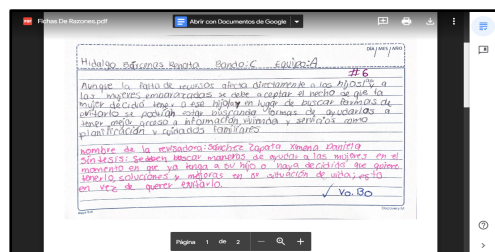 Fichas De Razones.pdf
Abrir con Documentos de Google
DIA / MES / AÑO
Hidalgo Bárcenas Renata Bando: C Equipo: A
#6
Aunque la falta de recursos afecta directamente a los hijos(as) y a
las mujeres embarazadas se debe aceptar el hecho de que la
mujer decidió tener a ese hijo/a y en lugar de buscar formas de
evitarlo se podrían estar buscando formas de ayudarlas a
tener mejor acceso a información, vivienda y servicios como
planificación y cuidados familiares
nombre de la revisadora: Sánchez Zapata Ximena Daniela
Síntesis: Se deben buscar maneras de ayudar a las mujeres en el
momento en que ya tenga a su hijo o haya decidido que quiere
tenerlo, soluciones y mejoras en su situación de vida; esto
en vez de querer evitarlo.
✓ Vo. Bo
Página 1 de 2